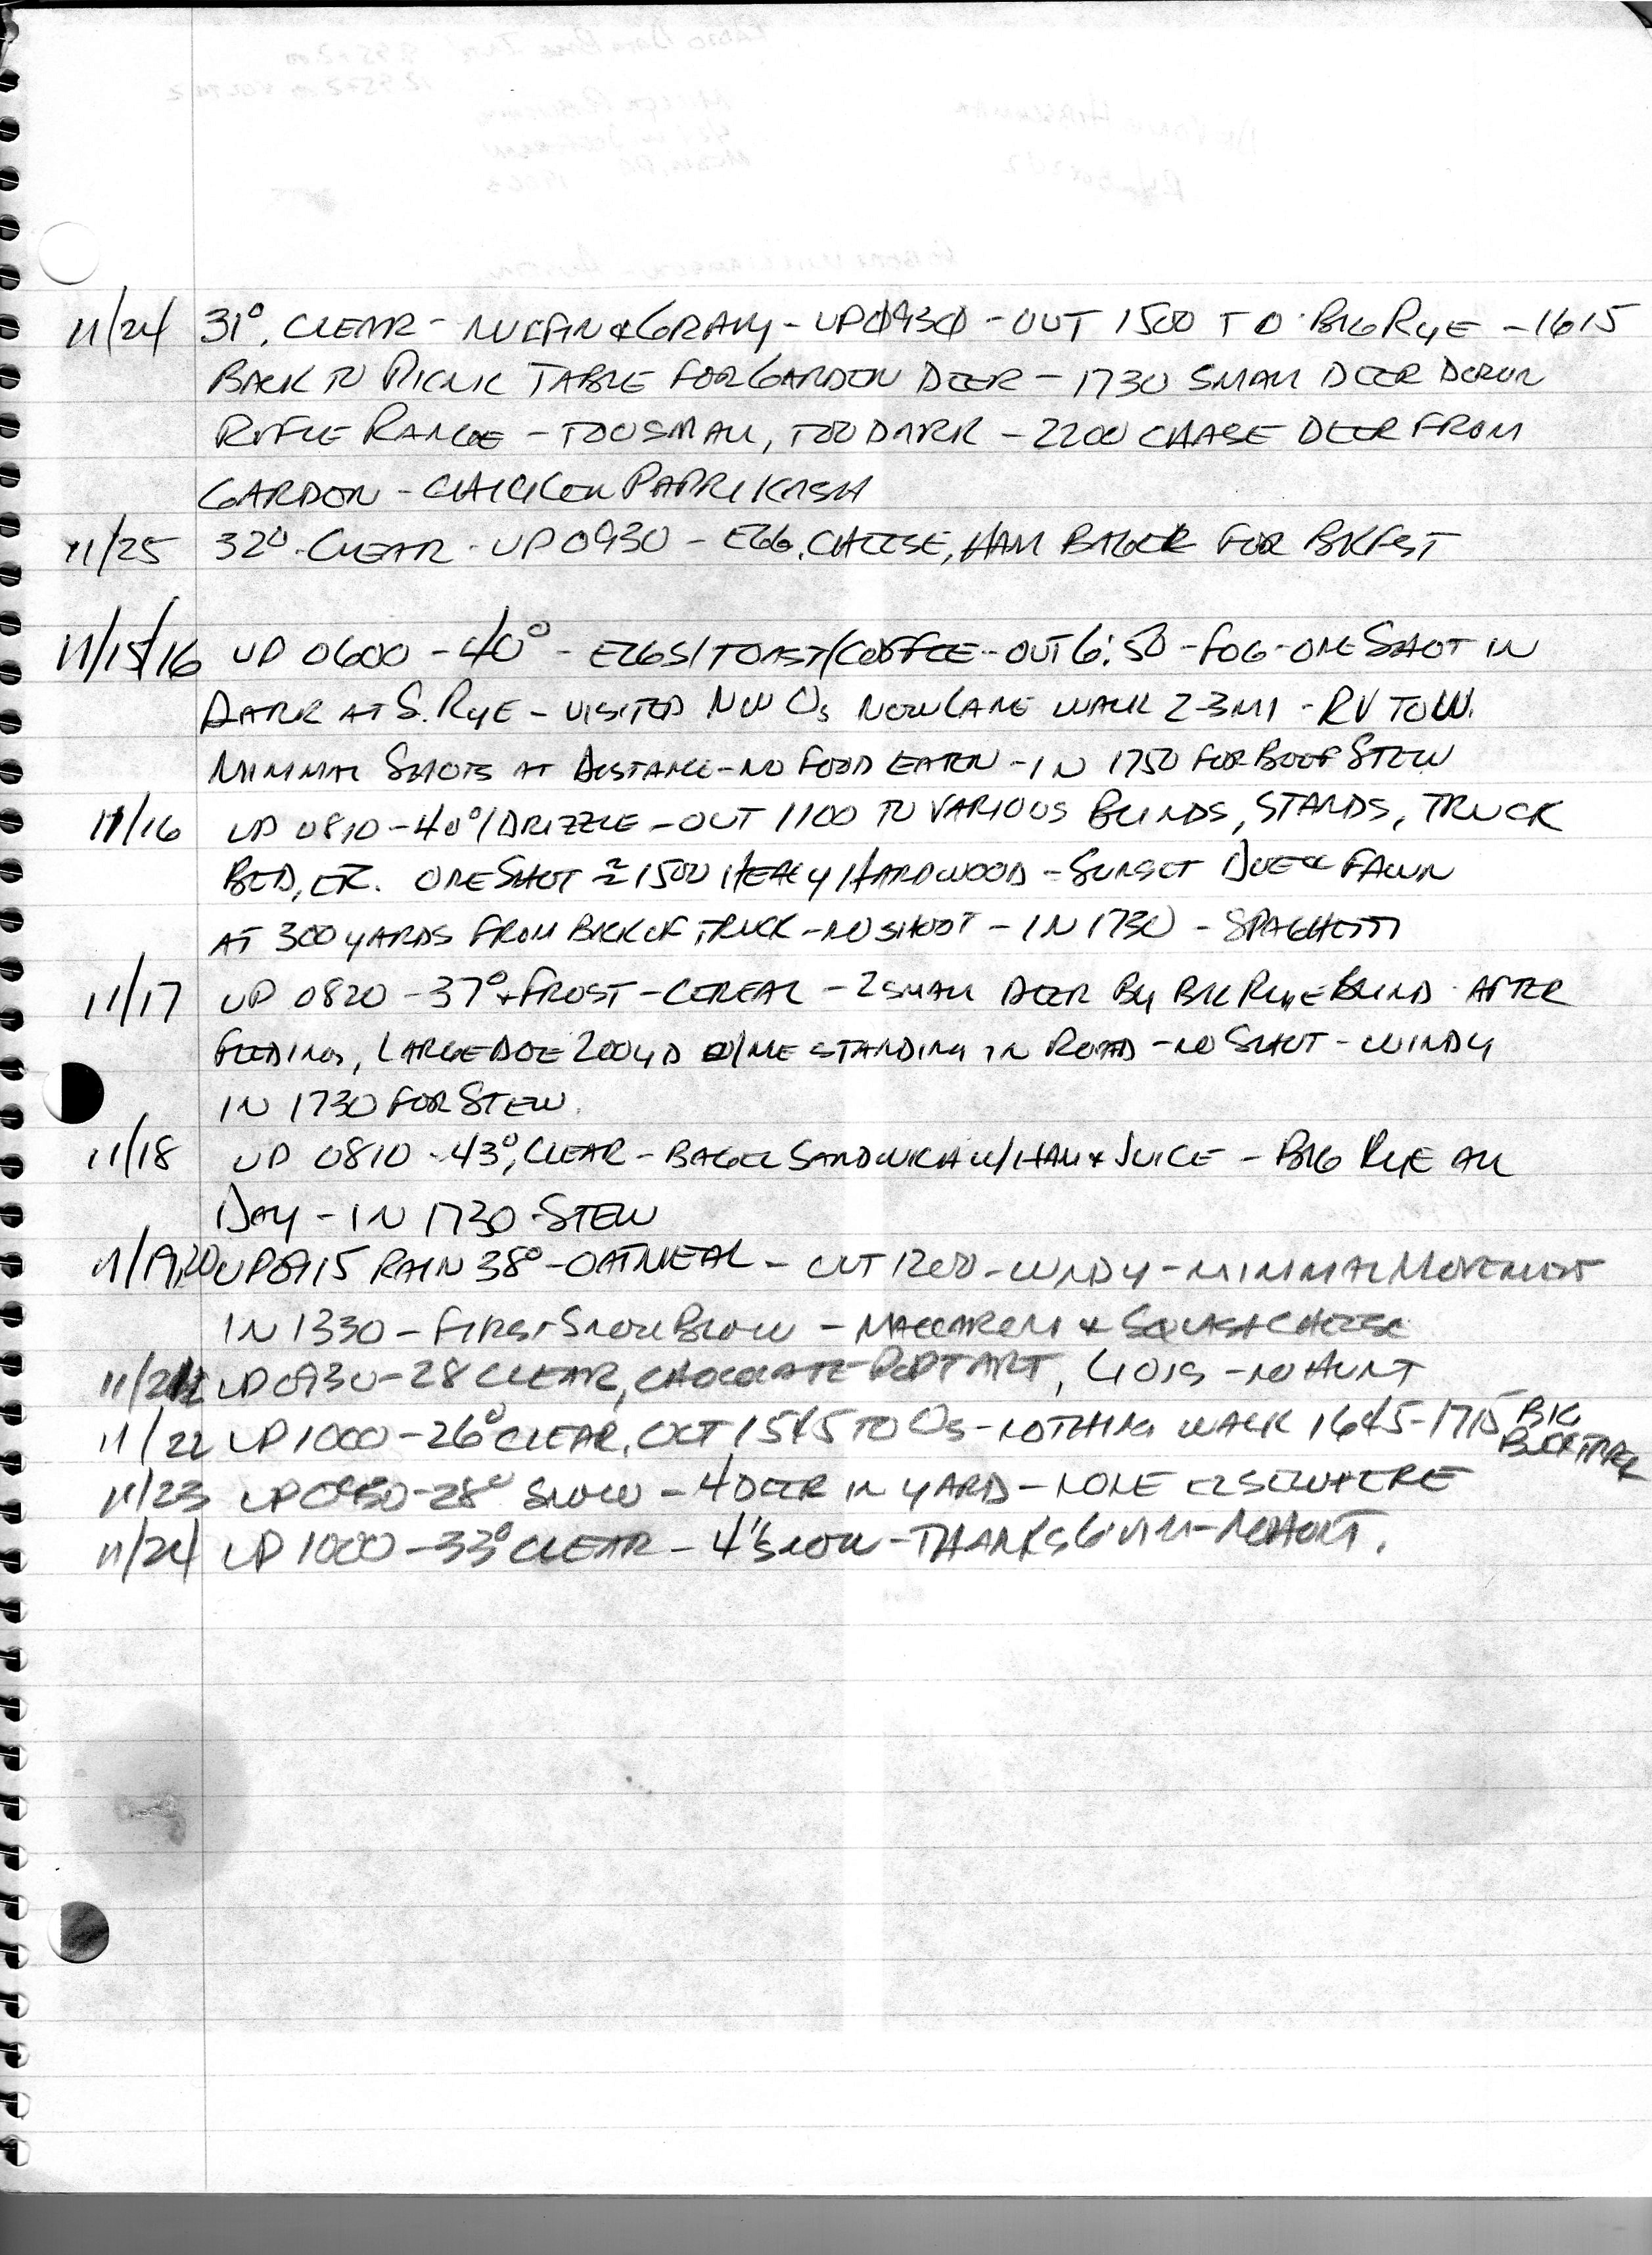 11/24 31°, CLEAR - MUFFIN & GRAVY - UP 0930 - OUT 1500 TO BIG RYE - 1615
BACK TO PICNIC TABLE FOR GARDEN DEER - 1730 SMALL DEER DOWN
RIFLE RANGE - TOO SMALL, TOO DARK - 2200 CHASE DEER FROM
GARDEN - CHICKEN PAPRIKASH
11/25 32° - CLEAR - UP 0930 - EGG, CHEESE, HAM BAGEL FOR BKFST
11/15/16 UP 0600 - 40° - EGGS/TOAST/COFFEE - OUT 6:50 - FOG - ONE SHOT IN
DARK AT S. RYE - VISITED NW Os NEW LANE WALK 2-3 MI - RV TO W.
MINIMAL SHOTS AT DISTANCE - NO FOOD EATEN - IN 1750 FOR BEEF STEW
11/16 UP 0810 - 40°/DRIZZLE - OUT 1100 TO VARIOUS BLINDS, STANDS, TRUCK
BED, ETC. ONE SHOT ≈ 1500 HEAVY HARDWOOD - SUNSET DOE & FAWN
AT 300 YARDS FROM BACK OF TRUCK - NO SHOOT - IN 1730 - SPAGHETTI
11/17 UP 0820 - 37° & FROST - CEREAL - 2 SMALL DEER BY BIG RYE BLIND AFTER
FEEDING, LARGE DOE 200 YD W/ME STANDING IN ROAD - NO SHOT - WINDY
IN 1730 FOR STEW.
11/18 UP 0810 - 43°, CLEAR - BAGEL SANDWICH W/HAM & JUICE - BIG RYE ALL
DAY - IN 1730 - STEW
11/19,20 UP 0915 RAIN 38° - OATMEAL - OUT 1200 - WINDY - MINIMAL MOVEMENT
IN 1330 - FIRST SNOW BLOW - MACCARONI & SQUASH CHEESE
11/21 UP 0930 - 28 CLEAR, CHOCOLATE POPTART, - NO HUNT
11/22 UP 1000 - 26° CLEAR, OUT 1545 TO Os - NOTHING WALK 1645-1715 BIG
BUCK TRACK
11/23 UP 0930 - 28° SNOW - 4 DEER IN YARD - NONE ELSEWHERE
11/24 UP 1000 - 33° CLEAR - 4" SNOW - THANKSGIVING - NO HUNT.